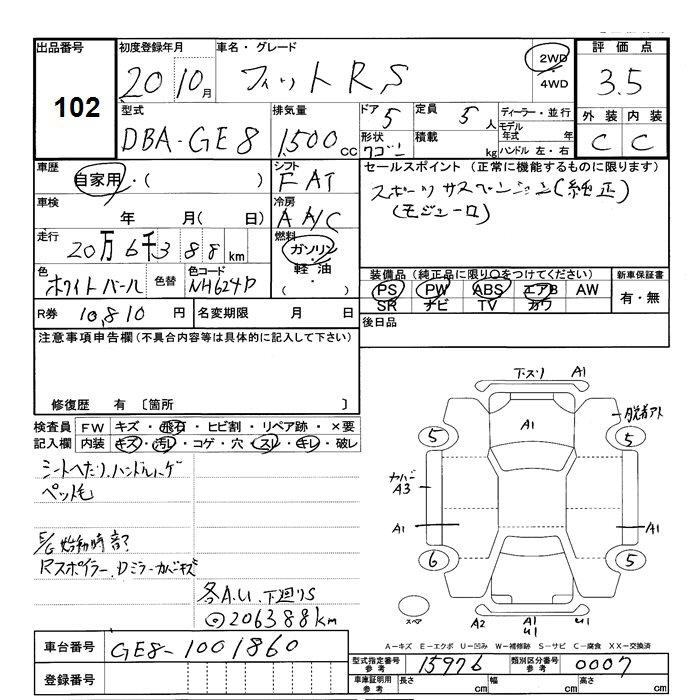 出品番号 102
初度登録年月 20 10月
車名・グレード フィットRS
2WD・4WD
評価点 3.5
外装 内装
C C
型式 DBA-GE8
排気量 1,500 cc
ドア 5
定員 5人
形状 ワゴン
積載 kg
ディーラー・並行
モデル年式 年
ハンドル 左・右
車歴 自家用・( )
シフト FAT
車検 年 月( 日)
冷房 AA/C
走行 20万6千388 km
燃料 ガソリン・軽油・( )
色 ホワイトパール 色替 色コード NH624P
R券 10,810 円 名変期限 月 日
セールスポイント(正常に機能するものに限ります)
スポーツサスペンション(純正)
(モジューロ)
装備品(純正品に限り○をつけてください)
PS PW ABS エアB AW
SR ナビ TV カワ
新車保証書 有・無
後日品
注意事項申告欄(不具合内容等は具体的に記入して下さい)
修復歴 有 〔箇所 〕
検査員記入欄
FW キズ・飛石・ヒビ割・リペア跡・×要
内装 キズ・汚れ・コゲ・穴・スレ・キレ・破レ
シートへたり、ハンドルハゲ
ペット毛
E/G始動時音
Rスポイラー、Dミラーカバーキズ
各A.U、下廻りS
◎206388km
下スリ A1
A1
脱着アト
5 5
カバー A3
A1 A1
6 5
スペア
A2 A1 U1 U1
A－キズ E－エクボ U－凹み W－補修跡 S－サビ C－腐食 XX－交換済
車台番号 GE8-1001860
登録番号
型式指定番号 参考 15976
類別区分番号 参考 0007
車庫証明用 参考 長さ cm 幅 cm 高さ cm